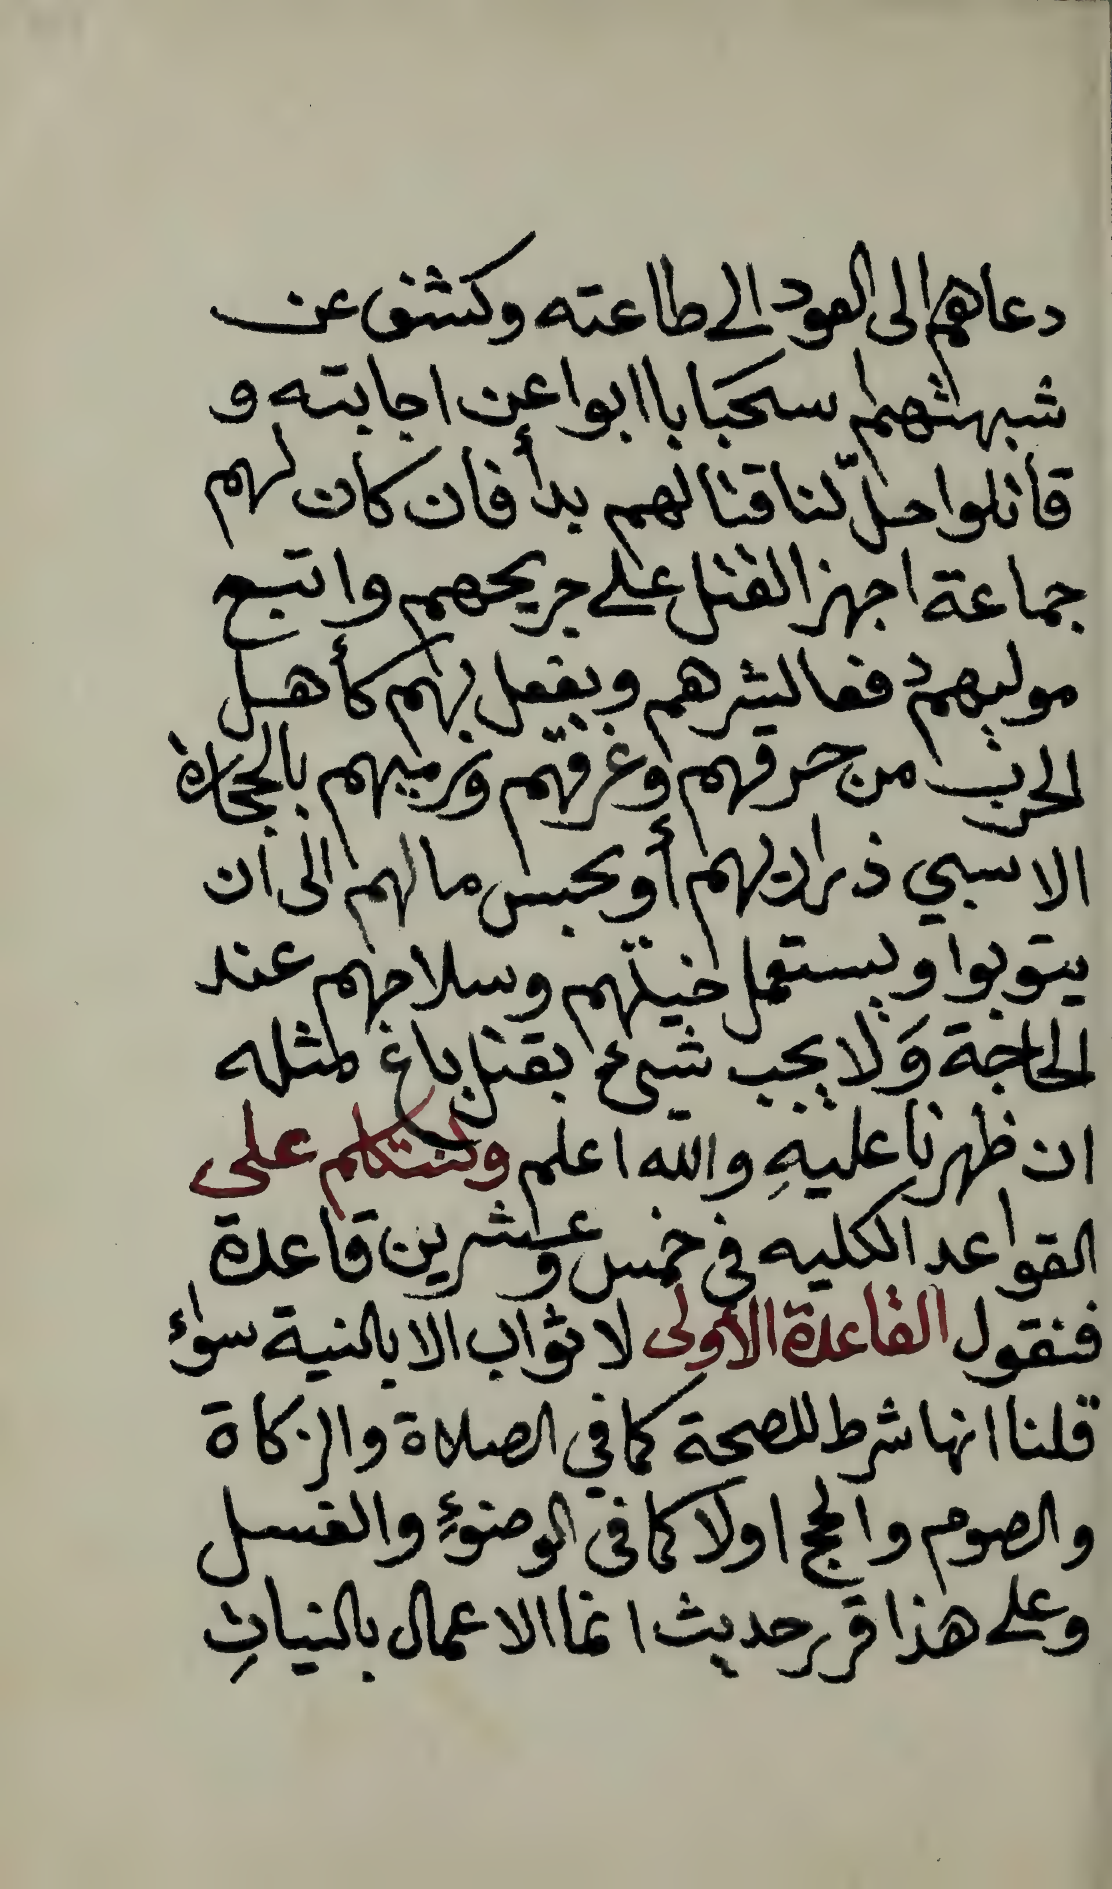 دعاهم الى العود الى طاعته وكشف عن
شبهتهم استحبابا ابوا عن اجابته و
قاتلوا حلّ لنا قتالهم بدأ فان كان لهم
جماعة اجهز القتل على جريحهم واتبع
موليهم دفعا لشرهم ويفعل بهم كأهل
الحرب من حرقهم وغرقهم ورميهم بالحجارة
الا سبي ذراريهم أو يحبس مالهم الى ان
يتوبوا ويستعمل خيلهم وسلاحهم عند
الحاجة وَلا يجب شيئ بقتل باغ مثله
ان ظهرنا عليهِ والله اعلم ولنتكلم على
القواعد الكليه في خمس وعشرين قاعدة
فنقول القاعدة الأولى لا ثواب الا بالنية سواء
قلنا انها شرط للصحة كما في الصلاة والزكاة
والصوم والحج اولا كما في الوضوءِ والغسل
وعلى هذا قرر حديث انما الاعمال بالنياتِ